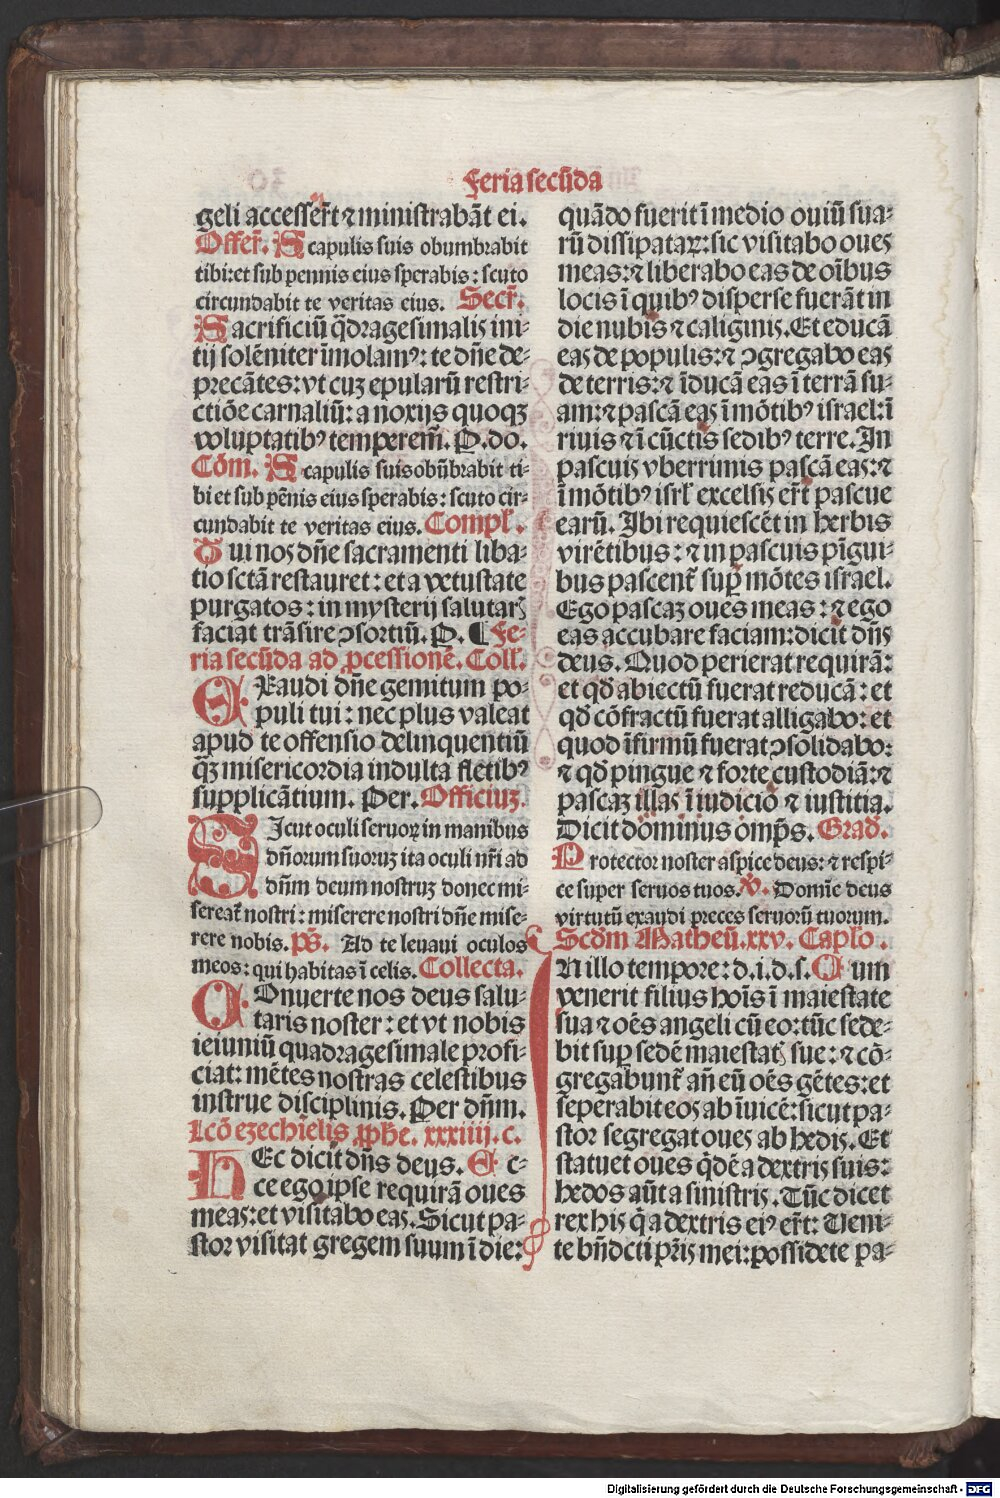 Feria secūda
geli accesser̄t ⁊ ministrabāt ei.
Offer̄. Scapulis suis obumbrabit
tibi: et sub pennis eius sperabis: scuto
circundabit te veritas eius. Secr̄.
Sacrificiū q̄dragesimalis ini⸗
tij solēniter īmolamꝰ: te dn̄e de⸗
precātes: vt cuꝫ epularū restri⸗
ctiōe carnaliū: a noxijs quoqꝫ
voluptatibꝰ temperem̄. P. do.
Cōm. Scapulis suis obūbrabit ti⸗
bi et sub pēnis eius sperabis: scuto cir⸗
cundabit te veritas eius. Compl̄.
Qui nos dn̄e sacramenti liba⸗
tio sctā restauret: et a vetustate
purgatos: in mysterij salutarꝭ
faciat trāsire ꝯsortiū. P. ¶ Fe⸗
ria secūda ad ꝓcessionē. Coll̄.
EXaudi dn̄e gemitum po⸗
puli tui: nec plus valeat
apud te offensio delinquentiū
q̄ꝫ misericordia indulta fletibꝰ
supplicātium. Per. Officiuꝫ.
SIcut oculi seruoꝝ in manibus
dn̄orum suoruꝫ ita oculi nr̄i ad
dn̄m deum nostruꝫ donec mi⸗
sereat̄ nostri: miserere nostri dn̄e mise⸗
rere nobis. ps̄. Ad te leuaui oculos
meos: qui habitas ī celis. Collecta.
COnuerte nos deus salu⸗
taris noster: et vt nobis
ieiuniū quadragesimale profi⸗
ciat: mētes nostras celestibus
instrue disciplinis. Per dn̄m.
Lcō ezechielis ꝓphe. xxxiiij. c.
HEc dicit dn̄s deus. Ec⸗
ce ego ipse requirā oues
meas: et visitabo eas. Sicut pa⸗
stor visitat gregem suum ī die:
quādo fuerit ī medio ouiū sua⸗
rū dissipataꝝ: sic visitabo oues
meas: ⁊ liberabo eas de oībus
locis ī quibꝰ disperse fuerāt in
die nubis ⁊ caliginis. Et educā
eas de populis: ⁊ ꝯgregabo eas
de terris: ⁊ īducā eas ī terrā su⸗
am: ⁊ pascā eas ī mōtibꝰ israel: ī
riuis ⁊ ī cūctis sedibꝰ terre. In
pascuis vberrimis pascā eas: ⁊
ī mōtibꝰ isrl̄ excelsis er̄t pascue
earū. Ibi requiescēt in herbis
virētibus: ⁊ in pascuis pīgui⸗
bus pascent̄ suꝑ mōtes israel.
Ego pascaꝫ oues meas: ⁊ ego
eas accubare faciam: dicit dn̄s
deus. Quod perierat requirā:
et qd̄ abiectū fuerat reducā: et
qd̄ cōfractū fuerat alligabo: et
quod īfirmū fuerat ꝯsolidabo:
⁊ qd̄ pingue ⁊ forte custodiā: ⁊
pascaꝫ illas ī iudicio ⁊ iustitia.
Dicit dominus omp̄s. Grad̄.
Protector noster aspice deus: ⁊ respi⸗
ce super seruos tuos. ℣. Domīe deus
virtutū exaudi preces seruorū tuorum.
Scd̄m Matheū. xxv. Caplō.
IN illo tempore: d. i. d. s. Cum
venerit filius hoīs ī maiestate
sua ⁊ oēs angeli cū eo: tūc sede⸗
bit suꝑ sedē maiestat̄ sue: ⁊ cō⸗
gregabunt̄ an̄ eū oēs gētes: et
seperabit eos ab īuicē: sicut pa⸗
stor segregat oues ab hedis. Et
statuet oues q̄dē a dextris suis:
hedos aūt a sinistris. Tūc dicet
rex his q̄ a dextris eiꝰ er̄t: Ueni⸗
te bn̄dcti pr̄is mei: possidete pa⸗
Digitalisierung gefördert durch die Deutsche Forschungsgemeinschaft - DFG